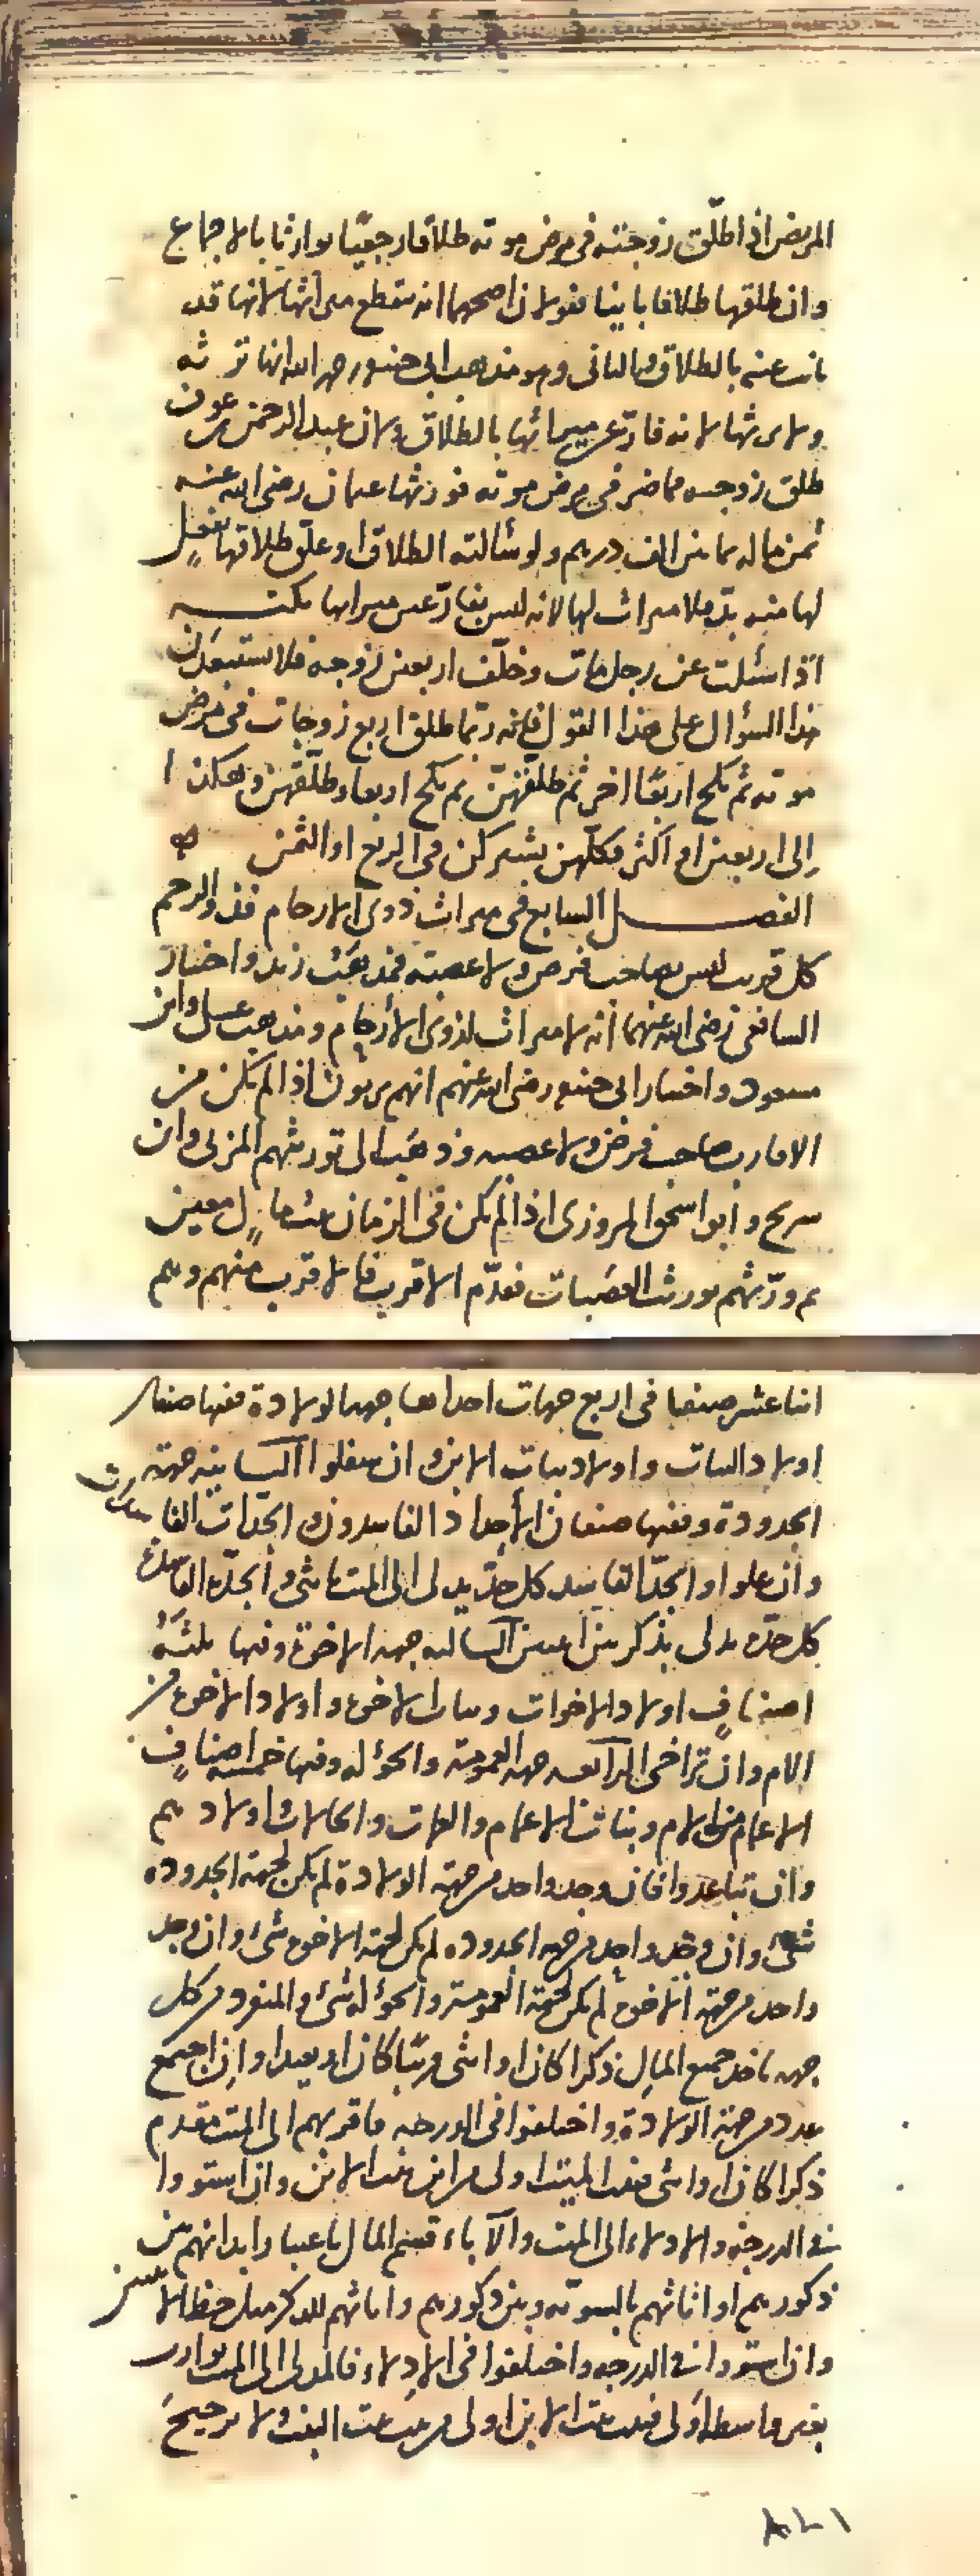 المريض اذا طلّق زوجته فى مرض موته طلاقا رجعيّا توارثا بالاجماع
وان طلقها طلاقا باينا فقولان اصحهما انه ينقطع ميراثها لانها قد
بانت عنه بالطلاق والثانى وهو مذهب ابى حنيفه رحمه الله انها ترثه
ولا يرثها لانه فارّ عن ميراثها بالطلاق ولان عبد الرحمن بن عوف
طلق زوجته تماضر فى مرض موته فورثها عثمان رضى الله عنه
ثمن ماله ثمانين الف درهم ولو سألته الطلاق او علق طلاقها بفعل
لها منه بدّ فلا ميراث لها لانه ليس بفارّ عن ميراثها نكتــه
اذا سئلت عن رجل مات وخلّف اربعين زوجه فلا تستبعدن
هذا السؤال على هذا القول فانه ربّما طلق اربع زوجات فى مرض
موته ثم نكح اربعًا اخر ثم طلّقهنّ ثم نكح اربعا وطلّقهنّ وهكذا
إلى اربعين او اكثر فكلّهن يشتركن فى الربع او الثمن
الفصــل السابع فى ميراث ذوى الارحام فذو الرحم
كل قريب ليس بصاحب فرض ولا عصبته فمذهب زيد واختيار
الشافعى رضى الله عنهما أنه لا ميراث لذوى الأرحام ومذهب على وابن
مسعود واختيار ابى حنيفه رضى الله عنهم انهم يرثون اذا لم يكن من
الاقارب صاحب فرض ولا عصبه وذهب الى توريثهم المزنى وابن
سريج وابو اسحق المروزى اذا لم يكن فى الزمان بيت مالٍ معين
ثم ورّثهم بورثت العصَبات فقدّم الاقرب فالاقرب منهم وهم
اثنا عشر صنفا فى اربع جهات احداها جهة الولادة ففيها صنفان
اولاد البنات واولاد بنات الابن وان سفلوا الثانيه جهة
الجدودة وفيها صنفان الأجداد الفاسدون والجدّات الفاسدات
وان علوا والجدّ الفاسد كل جدّ يدلى الى الميت بانثى والجدّه الفاسدة
كل جدّه تدلى بذكر بين انثيين الثالثه جهه الاخوة وفيها ثلثةُ
اصنافٍ اولاد الاخوات وبنات الاخوة واولاد الاخوة من
الام وان تراخى الرابعه جهه العمومة والخؤله وفيها خمسه اصنافٍ
الاعمام من الام وبنات الاعمام والعمات والخالات واولادهم
وان تباعدوا فان وجد واحد من جهة الولادة لم يكن لجهة الجدوده
شئ وان وجد واحد من جهه الجدوده لم يكن لجهة الاخوة شئ وان وجد
واحد من جهة الاخوة لم يكن لجهة العمومة والخؤله شئ والمنفرد من كل
جهه ياخذ جميع المال ذكرا كان او انثى قريبًا كان او بعيدا وان اجتمع
عدد من جهة الولادة واختلفوا فى الدرجه فاقربهم الى الميت مقدم
ذكرا كان او انثى فبنت البنت اولى من ابن بنت الابن وان استووا
فى الدرجه والادلاء الى الميت والآباء قسم المال باعتبار ابدانهم بين
ذكورهم او اناثهم بالسويه وبين ذكورهم واناثهم للذكر مثل حظ الانثيين
وان استووا فى الدرجه واختلفوا فى الادلاء فالمدلى الى الميت بوارث
بغير واسطه أولى فبنت بنت الابن اولى من بنت بنت البنت ولا ترجيح